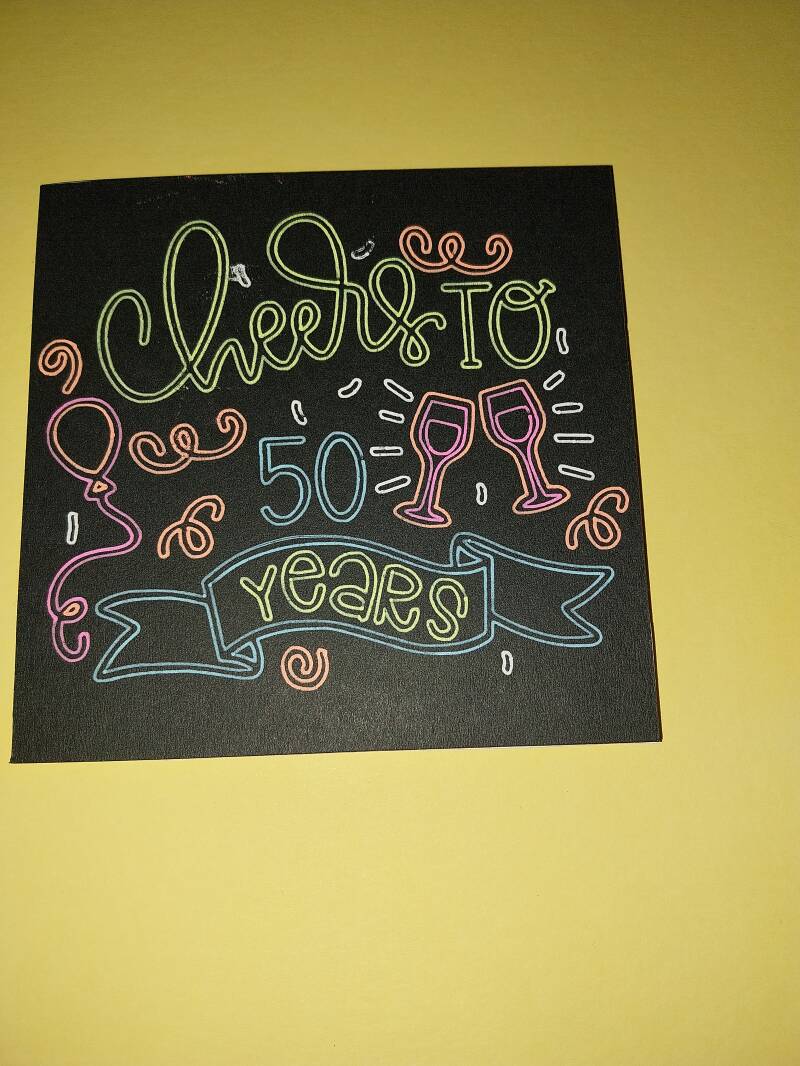 Cheers TO
50
YeaRS